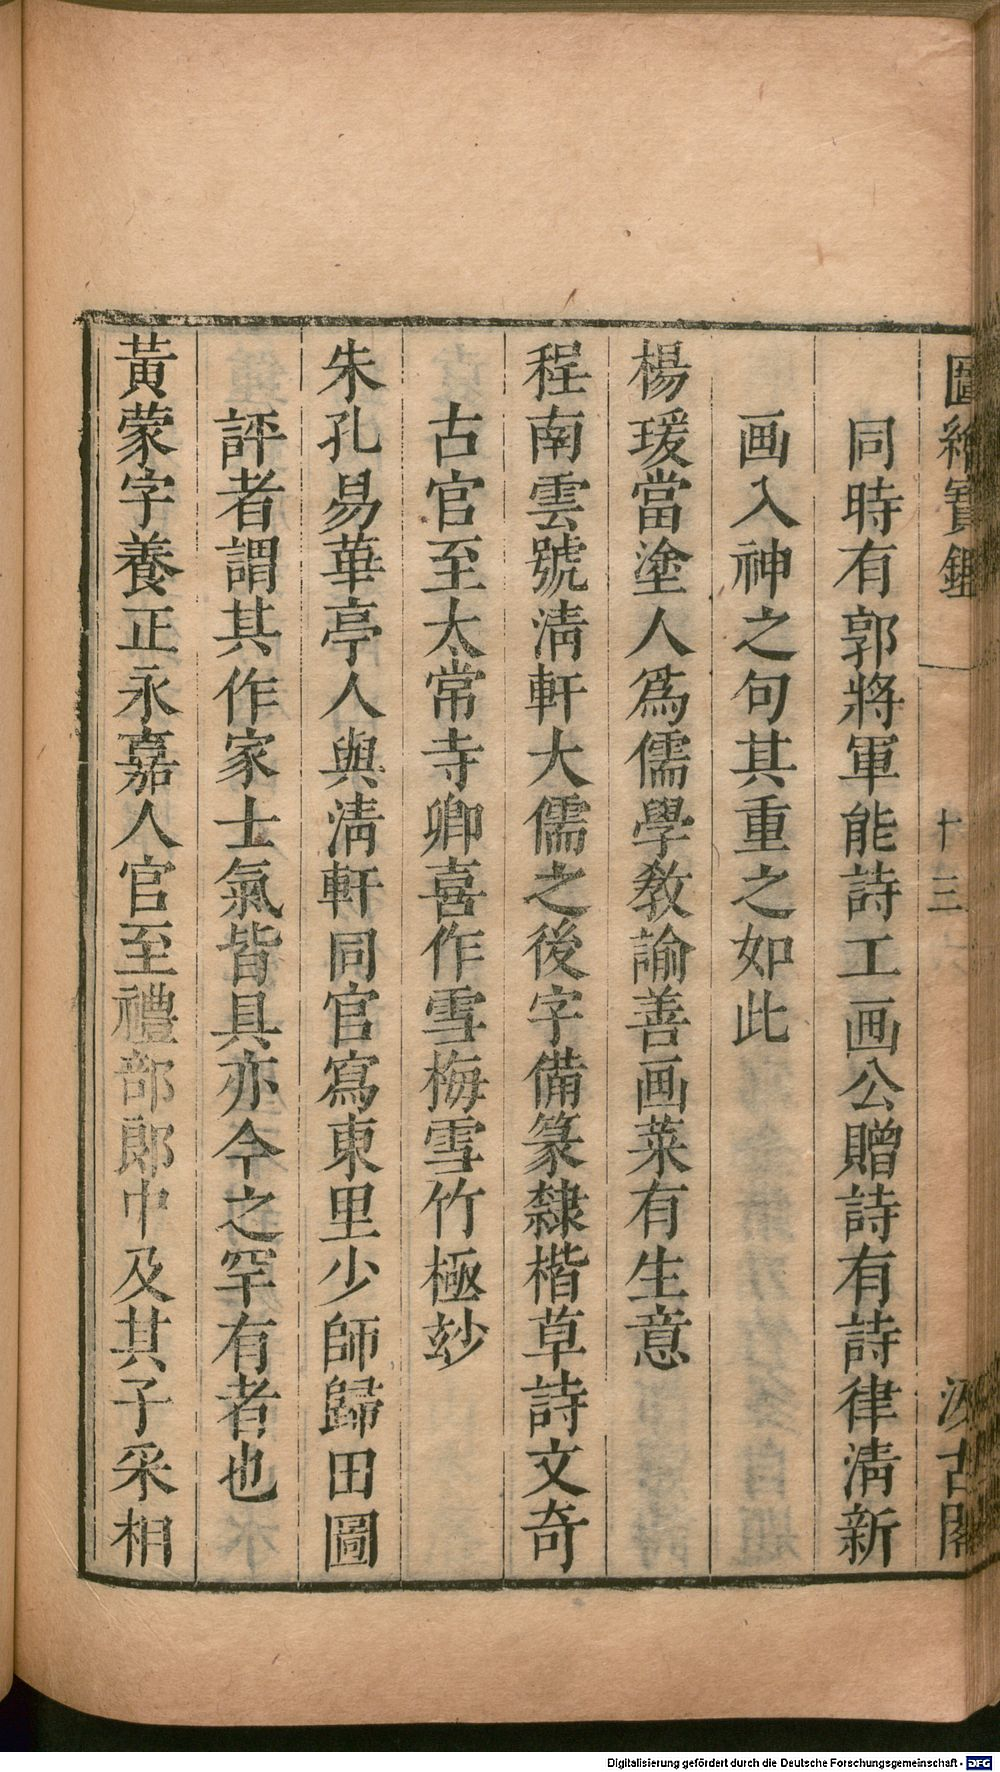 圖繪寶鑑
十三
汲古閣
同時有郭將軍能詩工画公贈詩有詩律淸新
画入神之句其重之如此
楊瑗當塗人爲儒學敎諭善画菜有生意
程南雲號淸軒大儒之後字備篆隸楷草詩文奇
古官至太常寺卿喜作雪梅雪竹極玅
朱孔昜華亭人與淸軒同官寫東里少師歸田圖
評者謂其作家士氣皆具亦今之罕有者也
黃蒙字養正永嘉人官至禮部郎中及其子采相
Digitalisierung gefördert durch die Deutsche Forschungsgemeinschaft - DFG